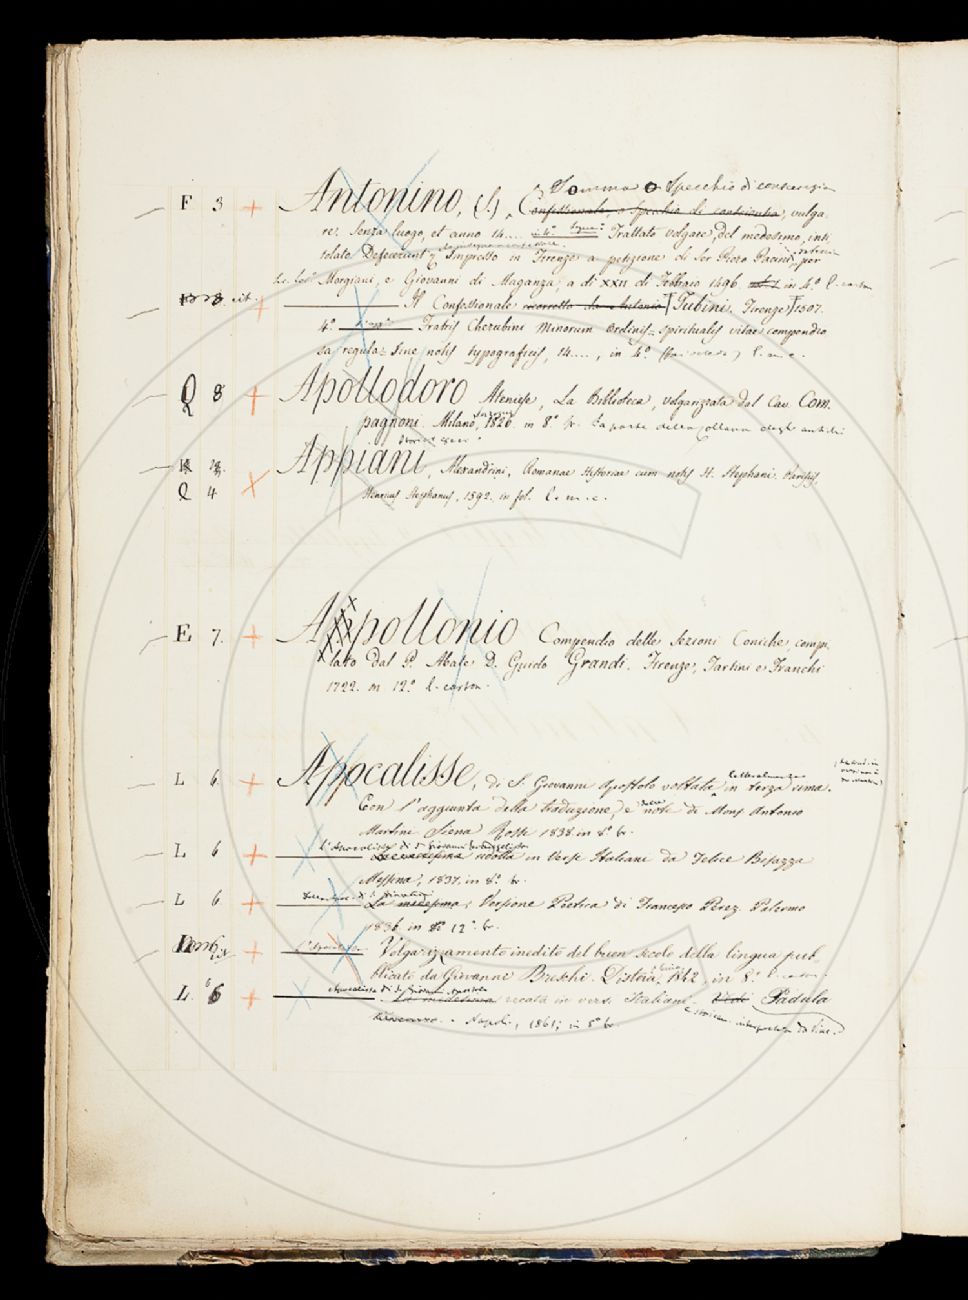 Somma o Specchio di conscienza
F 3 Antonino, (S.) Confessionale, o Specchio di conscientia, vulga-
re, Senza luogo, et anno 14.... in 4º Trattato volgare, del medesimo, inti-
tolato Defecerunt Impresso in Firenze a petizione di Ser Piero Pacini, per
Morgiani, e Giovanni di Maganza, a dì XXII di Febbraio 1496 in 4º l. carton
F 3 cit. Il Confessionale ricorretto da Antonio Tubini, Firenze 1507.
4º Fratris Cherubini Minorum Ordinis, spiritualis vitae compendio
sa regula: Sine notis typograficis, 14...., in 4º l. m. c.
Q 8 Apollodoro Ateniese, La Biblioteca, volgarizzata dal Cav. Com-
pagnoni. Milano, 1826. in 8º br. Fa parte della Collana degli antichi
Storici Greci.
Appiani, Alexandrini, Romanae Historiae cum notis H. Stephani. Parisiis,
Q 4 Henricus Stephanus, 1592. in fol. l. m. c.
E 7. Appollonio Compendio delle Sezioni Coniche, compi-
lato dal P. Abate D. Guido Grandi. Firenze, Tartini e Franchi
1722. in 12º l. carton.
L 6 Appocalisse, di S. Giovanni Apostolo voltata letteralmente in terza rima.
Con l'aggiunta della traduzione, e delle note di Mons Antonio
Martini Siena Rossi 1838 in 8º br.
l'Apocalisse di S. Giovanni Evangelista
L 6 La medesima ridotta in Verse Italiani da Felice Bisazza
Messina, 1837. in 8º br.
L 6 La medesima; Versione Poetica di Francesco Perez. Palermo
1836 in 12º br.
L'Apocalisse Volgarizzamento inedito del buon secolo della lingua pub-
blicato da Giovanni Breschi. Pistoia, 1842, in 8º
Apocalisse di S. Giovanni Apostolo
L. 6 La medesima recata in versi Italiani Padula
e storicam. interpretata da Vinc.
Napoli, 1861; in 8º br.